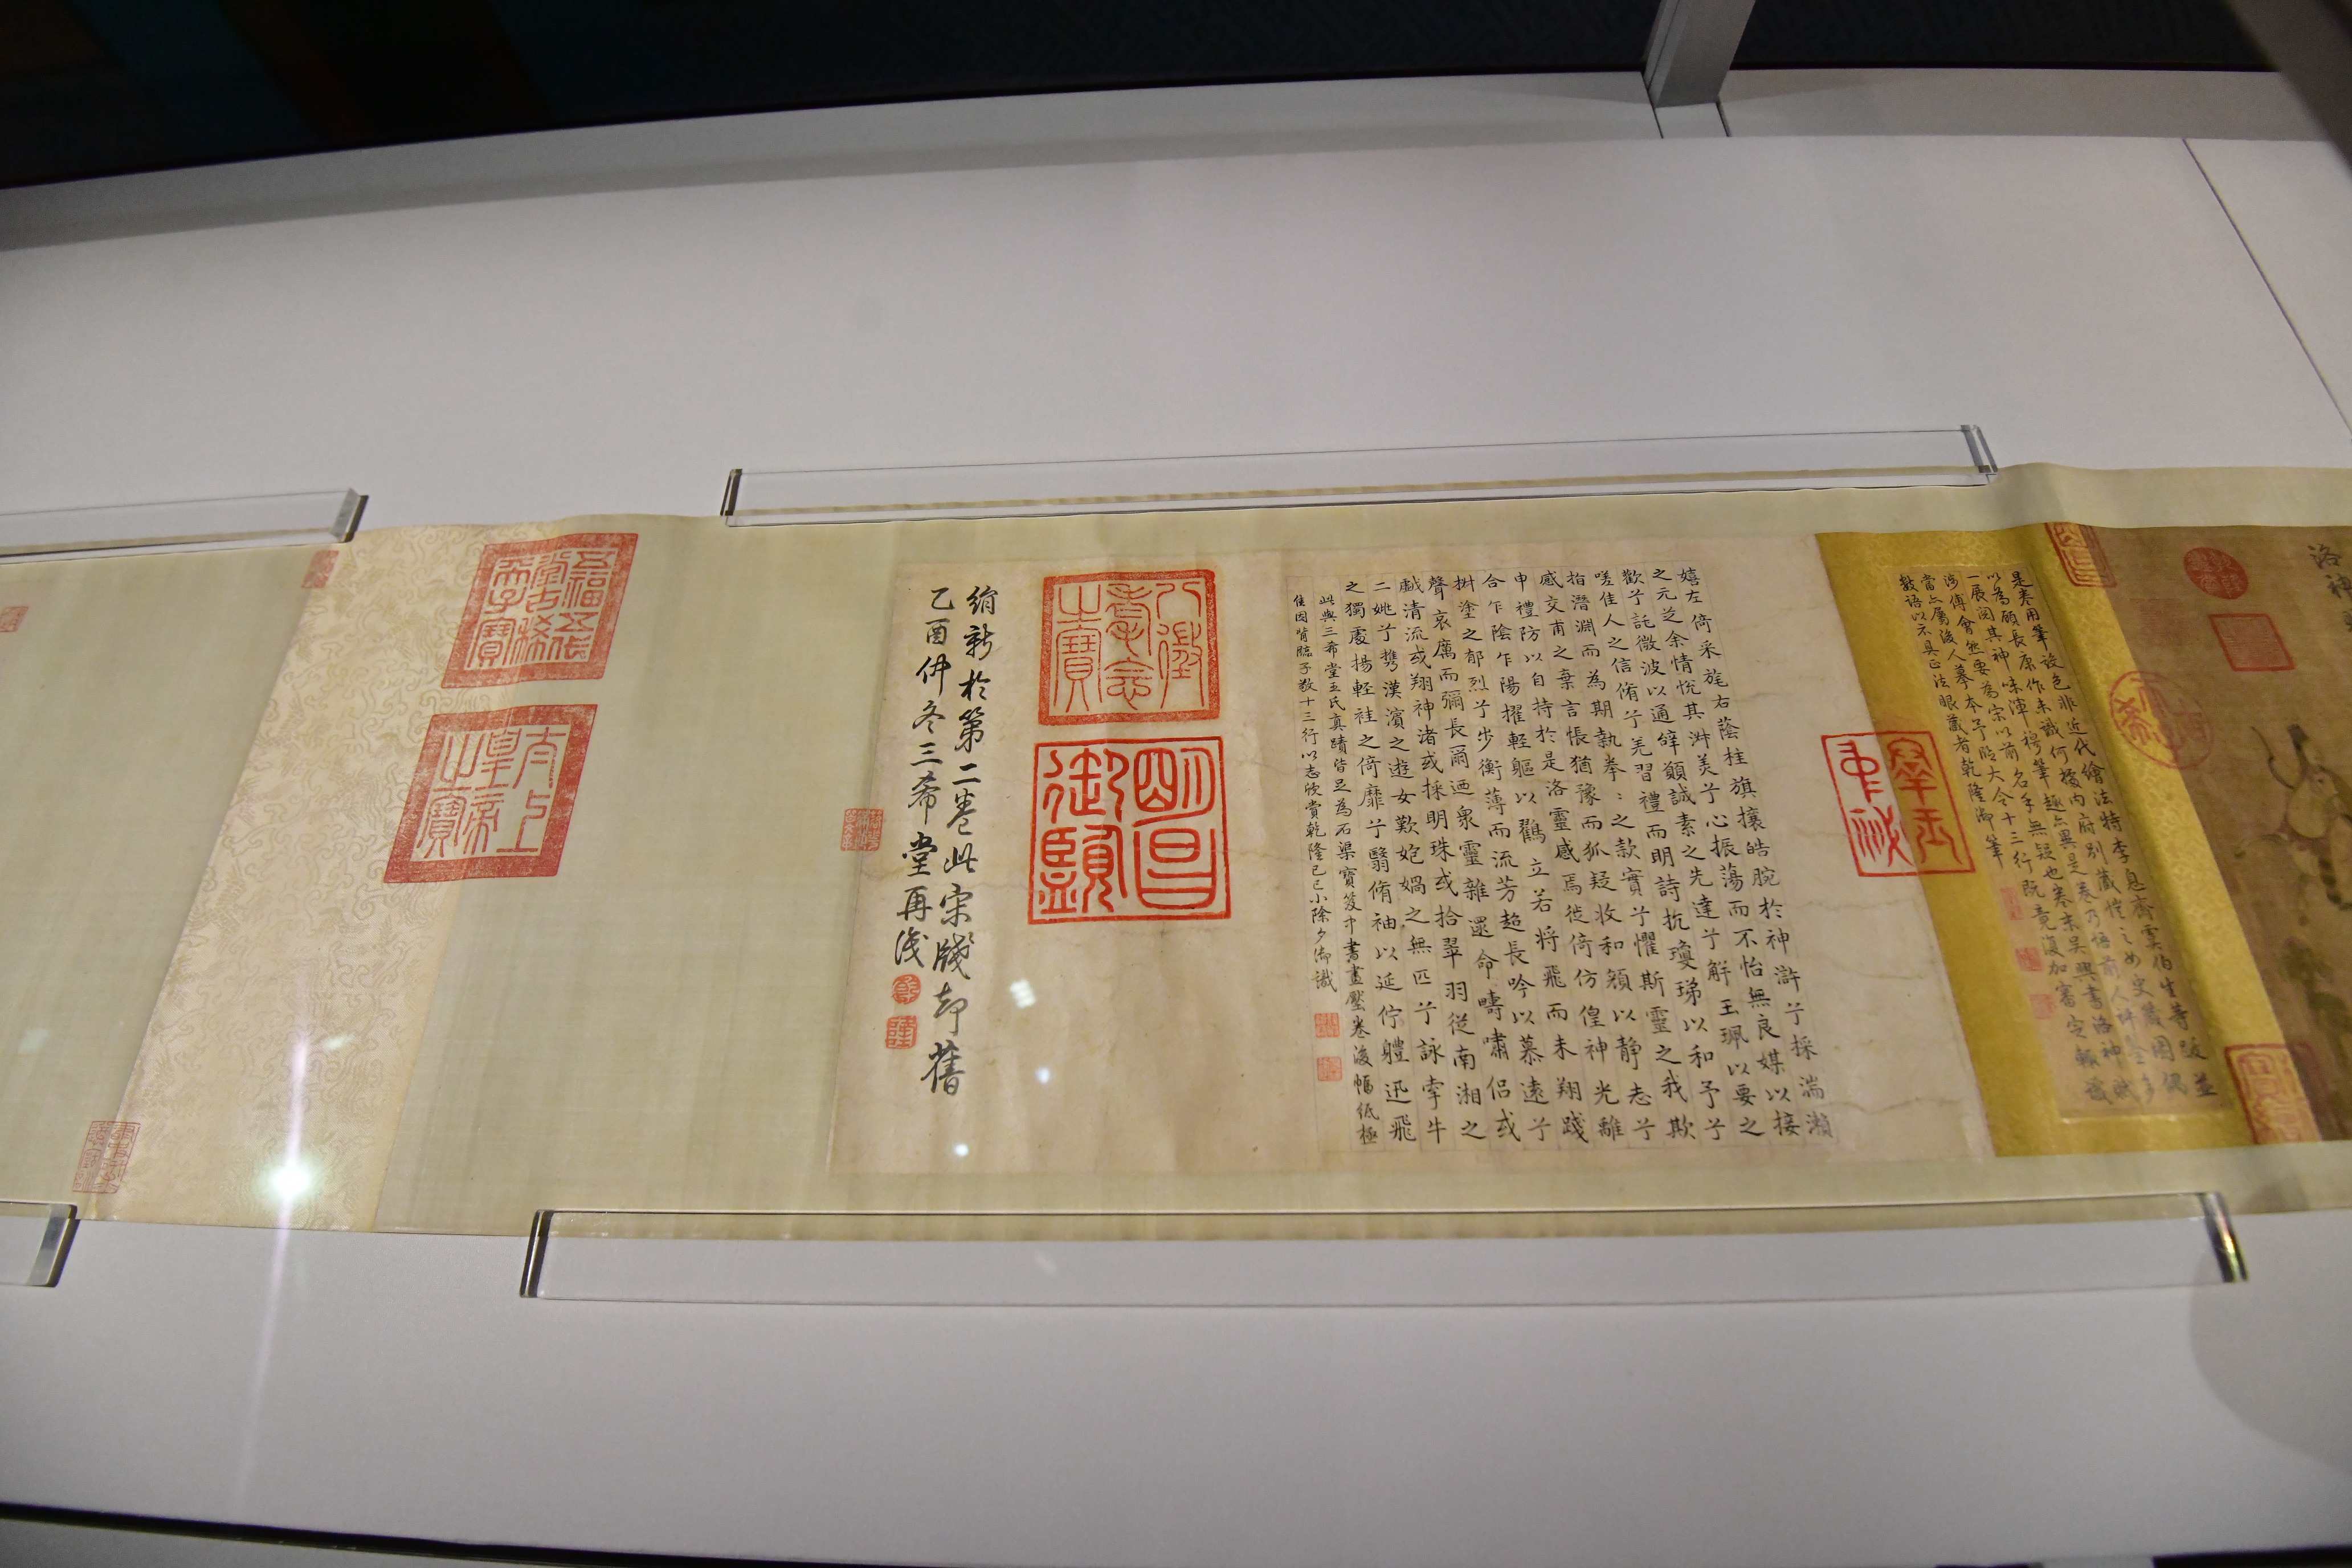 洛神
是卷用筆設色非近代繪法特李息齋虞伯生等跋並
以為顧長康作未識何據內府別藏愷之女史箴圖偶
一展閱其神味渾穆筆趣亦異是卷乃悟前人評鑒多
涉傅會然要為宋以前名手無疑也卷末吳興書洛神賦
當亦屬後人摹本予臨大令十三行既竟復加審定輒識
數語以示具正法眼藏者乾隆御筆
羣玉中秘
嬉左倚采旄右蔭桂旗攘皓腕於神滸兮採湍瀨
之元芝余情悅其淑美兮心振蕩而不怡無良媒以接
歡兮託微波以通辭願誠素之先達兮解玉珮以要之
嗟佳人之信脩兮羌習禮而明詩抗瓊珶以和予兮
指潛淵而為期執拳〻之款實兮懼斯靈之我欺
感交甫之棄言悵猶豫而狐疑收和顏以静志兮
申禮防以自持於是洛靈感焉徙倚仿偟神光離
合乍陰乍陽擢輕軀以鸖立若將飛而未翔踐
椒塗之郁烈兮步衡薄而流芳超長吟以慕遠兮
聲哀厲而彌長爾迺衆靈雜還命疇嘯侶或
戲清流或翔神渚或採明珠或拾翠羽從南湘之
二姚兮携漢濱之遊女歎匏媧之無匹兮詠牽牛
之獨處揚輕袿之倚靡兮翳脩袖以延佇軆迅飛
此與三希堂王氏真蹟皆足為石渠寶笈中書畫壓卷後幅紙極
佳因背臨子敬十三行以志欣賞乾隆己巳小除夕御識
八徵耄念之寶
明昌御覽
絹新於第二卷此宋牋却舊
乙酉仲冬三希堂再識
五福五代堂古稀天子寶
太上皇帝之寶